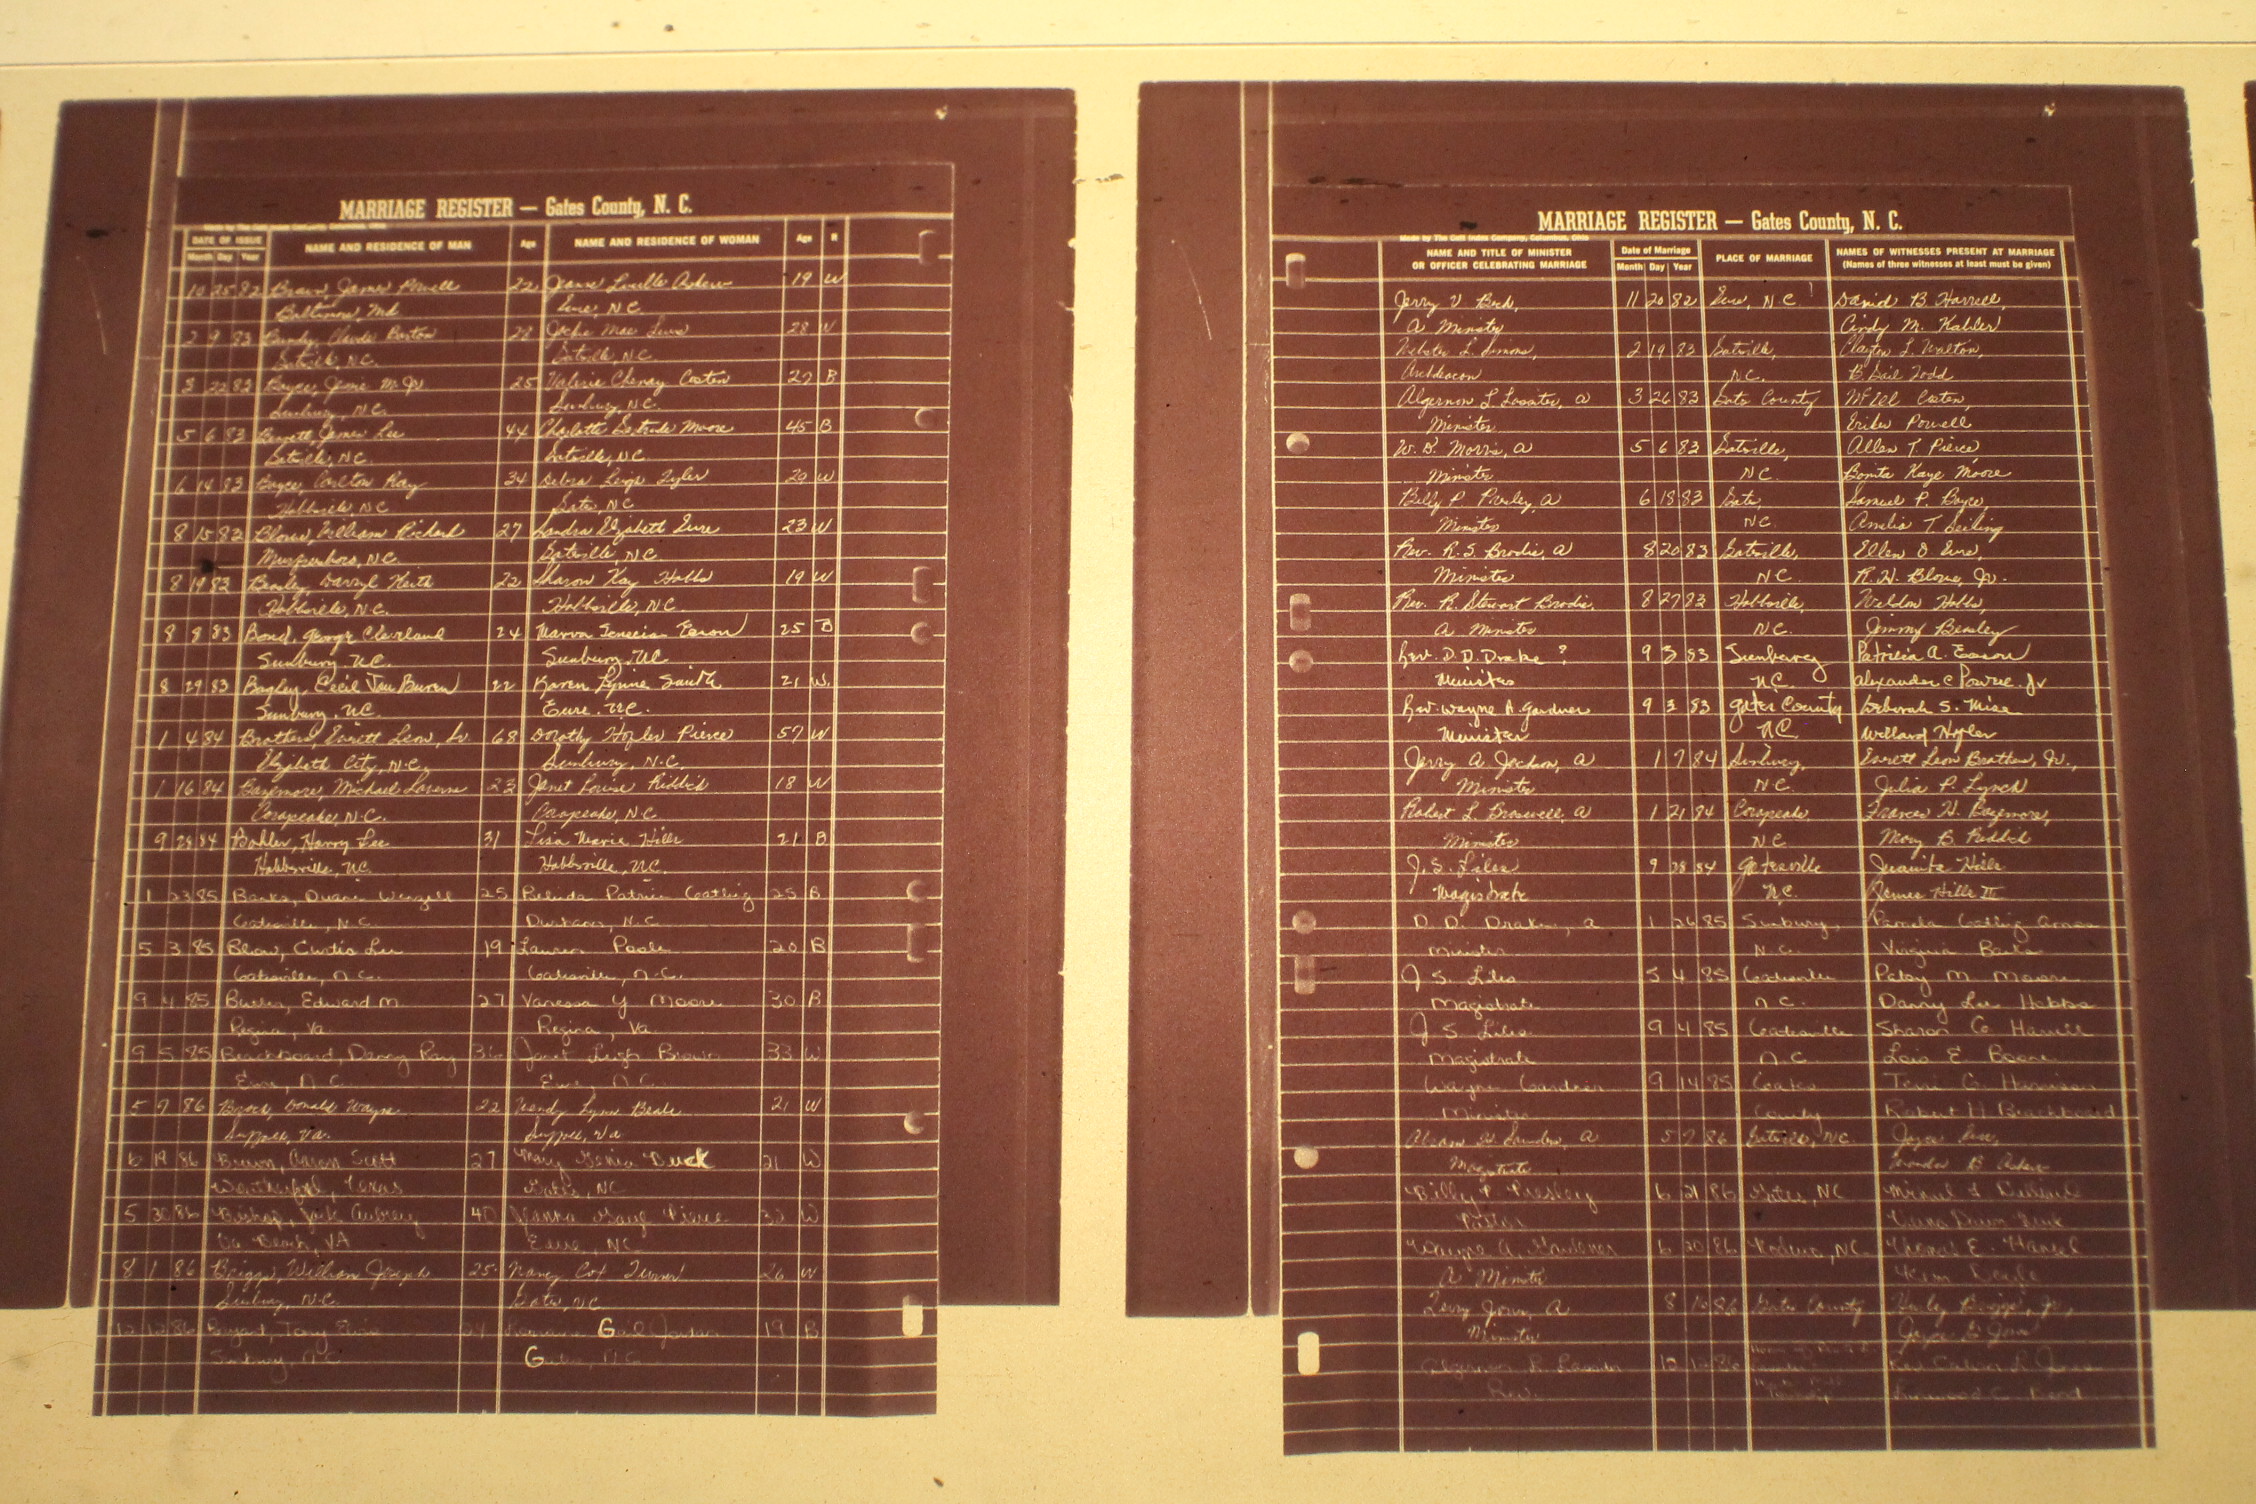 MARRIAGE REGISTER — Gates County, N. C.
DATE OF ISSUE
Month Day Year
NAME AND RESIDENCE OF MAN
Age
NAME AND RESIDENCE OF WOMAN
Age
R
10 25 82 Brown James Powell 22 Jeanne Louille Askew 19 W
Baltimore, Md Eure N.C.
2 9 83 Bundy, Claude Barton 28 W
N.C. N.C.
3 22 83 Boyce, M. Jr 25 Valerie Chenay Costen 27 B
Sunbury, N.C. Sunbury, N.C.
5 6 83 Bennett, James Lee 44 Charlotte Gertrude Moore 45 B
Gatesville, NC Gatesville, NC
6 14 83 Boyce, Carlton Ray 34 Debra Leigh Tyler 29 W
Hobbsville, NC Gates, NC
8 15 83 Blowe, William Richard 27 Sandra Elizabeth Eure 23 W
Murfreesboro, NC Gatesville, NC
8 19 83 Beasley Darryl Keith 22 Sharon Kay Hobbs 19 W
Hobbsville, N.C. Hobbsville, N.C.
8 8 83 Bond, George Cleveland 24 Marva Eason 25 B
Sunbury, N.C. Sunbury, N.C.
8 29 83 Bagley, Cecil Van Buren 22 Karen Lynne Smith 21 W.
Sunbury, N.C. Eure, N.C.
1 4 84 Brothers, Everett Leon, Sr 68 Dorothy Hofler Pierce 57 W
Elizabeth City, N.C. Sunbury, N.C.
1 16 84 Bazemore, Michael Laverne 23 Janet Louise Riddick 18 W
Corapeake, N.C. Corapeake, N.C.
9 28 84 Bohler, Harry Lee 31 Lisa Marie Hills 21 B
Hobbsville, N.C. Hobbsville, N.C.
1 23 85 Banks, Duane Wenzell 25 Belinda Patrice Gatling 25 B
Gatesville, N.C. Durham, N.C.
5 3 85 Blow, Curtis Lee 19 Lauren Poole 20 B
Gatesville, N.C. Gatesville, N.C.
9 4 85 Butler, Edward M 27 Vanessa Y Moore 30 B
Regina, Va Regina, Va
9 5 85 Beachboard, Danny Ray 36 Janet Leigh Brown 33 W
Eure, N.C. Eure, N.C.
5 7 86 Brock, Donald Wayne 22 Wendy Lynn Beale 21 W
Suffolk, Va. Suffolk, Va
6 19 86 Brown, Aaron Scott 27 Mary Duck 21 W
Weatherford, Texas Gates, NC
5 30 86 Bishop, Jack Aubrey 40 Pierce 32 W
Va Beach, VA Eure, NC
8 1 86 Briggs, William Joseph 25 Nancy Cox Turner 26 W
Sunbury, N.C. Gates, NC
12 12 86 24 Gail Jordan 19 B
Sunbury, NC Gates, N.C.
MARRIAGE REGISTER — Gates County, N. C.
Made by The Cott Index Company, Columbus, Ohio
NAME AND TITLE OF MINISTER
OR OFFICER CELEBRATING MARRIAGE
Date of Marriage
Month Day Year
PLACE OF MARRIAGE
NAMES OF WITNESSES PRESENT AT MARRIAGE
(Names of three witnesses at least must be given)
Jerry V Beck, 11 20 82 Eure, N.C. David B. Harrell,
A Minister Cindy M. Kahler
Webster L. Simons, 2 19 83 Gatesville, Clayton L. Walton,
Archdeacon N.C. B. Gail Todd
Algernon L Lassiter, a 3 26 83 Gates County Costen,
Minister Powell
W. D. Morris, a 5 6 83 Gatesville, Allen T. Pierce
Minister NC. Bonita Kaye Moore
Billy P. Presley, a 6 18 83 Gates, Samuel P. Boyce,
Minister NC. Amelia T
Rev. R. S. Brodie, a 8 20 83 Gatesville, Ellen O Eure,
Minister NC. R. H. Blowe, Jr.
Rev. R. Stewart Brodie, 8 27 83 Hobbsville, Weldon Hobbs,
A Minister NC. Jimmy Beasley
Rev. D. D. Drake ? 9 3 83 Sunbury Patricia A. Eason
Minister N.C. Alexander C Powre. Jr
Rev. Wayne A. Gardner 9 3 83 Gates County Deborah S.
Minister N.C. Willard Hofler
Jerry A Jackson, a 1 7 84 Sunbury, Everett Leon Brothers, Jr.,
Minister N.C. Julia P. Lynch
Robert L Braswell, a 1 21 84 Corapeake Frances H. Bazemore,
Minister NC Mary B. Riddick
J. S. Liles 9 28 84 Gatesville Juanita Hills
Magistrate N.C. James Hills III
D. D. Drake, a 1 26 85 Sunbury, Pamela Gatling
Minister N.C. Virginia Banks
J S. Liles 5 4 85 Gatesville Patsy M. Moore
Magistrate N.C. Danny Lee Hobbs
J S Liles 9 4 85 Gatesville Sharon G Harrell
Magistrate N.C. Lois E Boone
Wayne Gardner 9 14 85 Gates Terri G. Harrison
Minister County Robert H Beachboard
H. Saunders, a 5 7 86 Gatesville, NC. Joyce
Magistrate B Askew
Billy P Presley 6 21 86 Gates, NC
Pastor Dawn Duck
Wayne A. Gardner 6 30 86 Roduco, NC Thomas E.
A Minister Kim
Jones, A 8 86 Gates County Briggs, Jr.,
Minister Joyce
Algernon L Lassiter 12 12 86
Rev. Linwood C. Bond